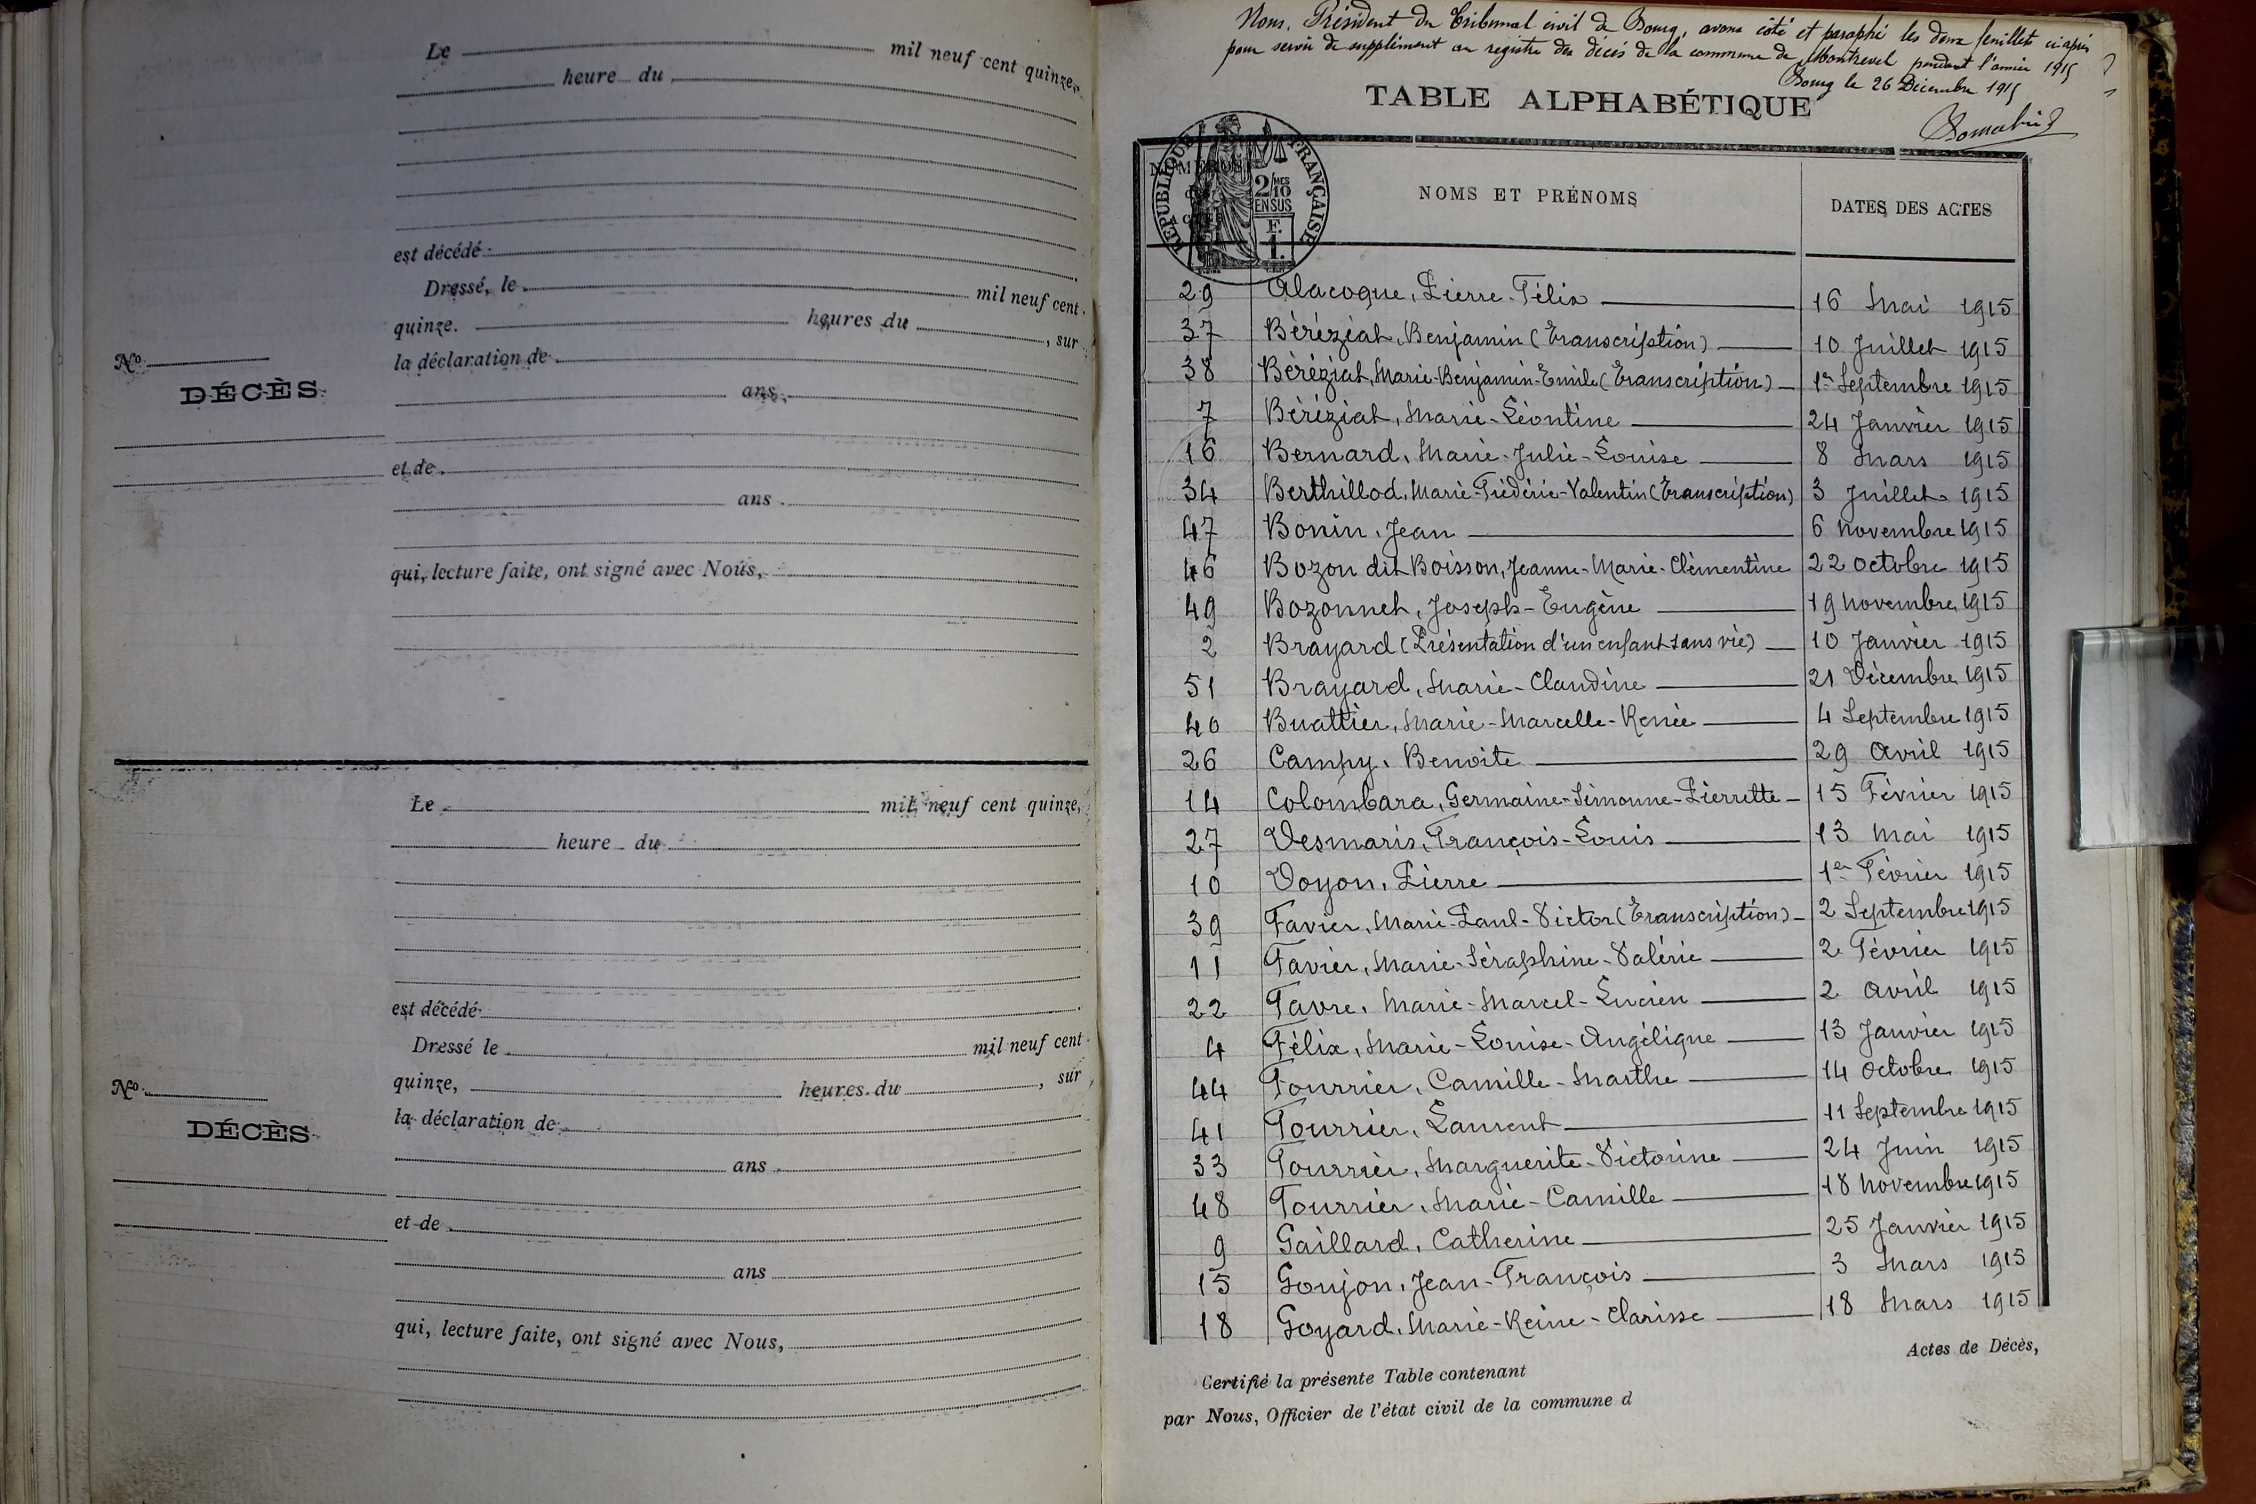 Le mil neuf cent quinze,
heure du
est décédé
Dressé, le mil neuf cent
quinze. heures du , sur
No
la déclaration de
DÉCÈS
ans
et de
ans
qui, lecture faite, ont signé avec Nous,
Le mil neuf cent quinze,
heure du
est décédé
Dressé le mil neuf cent
quinze, heures du , sur
No
la déclaration de
DÉCÈS
ans
et de
ans
qui, lecture faite, ont signé avec Nous,
Nous, Président du Tribunal civil de Bourg, avons coté et paraphé les deux feuillets ci-après
pour servir de supplément au registre des décès de la commune de Montrevel pendant l'année 1915
Bourg le 26 Décembre 1915
TABLE ALPHABÉTIQUE
RÉPUBLIQUE FRANÇAISE
2/10 MES
EN SUS
F.
1.
NUMÉROS des ACTES NOMS ET PRÉNOMS DATES DES ACTES
29 Alacoque, Pierre-Félix 16 Mai 1915
37 Béréziat, Benjamin (Transcription) 10 Juillet 1915
38 Béréziat, Marie-Benjamin-Emile (Transcription) 1er Septembre 1915
7 Béréziat, Marie-Léontine 24 Janvier 1915
16 Bernard, Marie-Julie-Louise 8 Mars 1915
34 Berthillod, Marie-Frédéric-Valentin (Transcription) 3 Juillet 1915
47 Bonin, Jean 6 Novembre 1915
46 Bozon dit Boisson, Jeanne-Marie-Clémentine 22 Octobre 1915
49 Bozonnet, Joseph-Eugène 19 Novembre 1915
2 Brayard (Présentation d'un enfant sans vie) 10 Janvier 1915
51 Brayard, Marie-Claudine 21 Décembre 1915
40 Buattier, Marie-Marcelle-Renée 4 Septembre 1915
26 Campy, Benoite 29 Avril 1915
14 Colombara, Germaine-Simonne-Pierrette 15 Février 1915
27 Desmaris, François-Louis 13 Mai 1915
10 Doyon, Pierre 1er Février 1915
39 Favier, Marie-Paul-Victor (Transcription) 2 Septembre 1915
11 Favier, Marie-Séraphine-Valérie 2 Février 1915
22 Favre, Marie-Marcel-Lucien 2 Avril 1915
4 Félix, Marie-Louise-Angélique 13 Janvier 1915
44 Fourrier, Camille-Marthe 14 Octobre 1915
41 Fourrier, Laurent 11 Septembre 1915
33 Fourrier, Marguerite-Victorine 24 Juin 1915
48 Fourrier, Marie-Camille 18 Novembre 1915
9 Gaillard, Catherine 25 Janvier 1915
15 Goujon, Jean-François 3 Mars 1915
18 Goyard, Marie-Reine-Clarisse 18 Mars 1915
Certifié la présente Table contenant Actes de Décès,
par Nous, Officier de l'état civil de la commune d